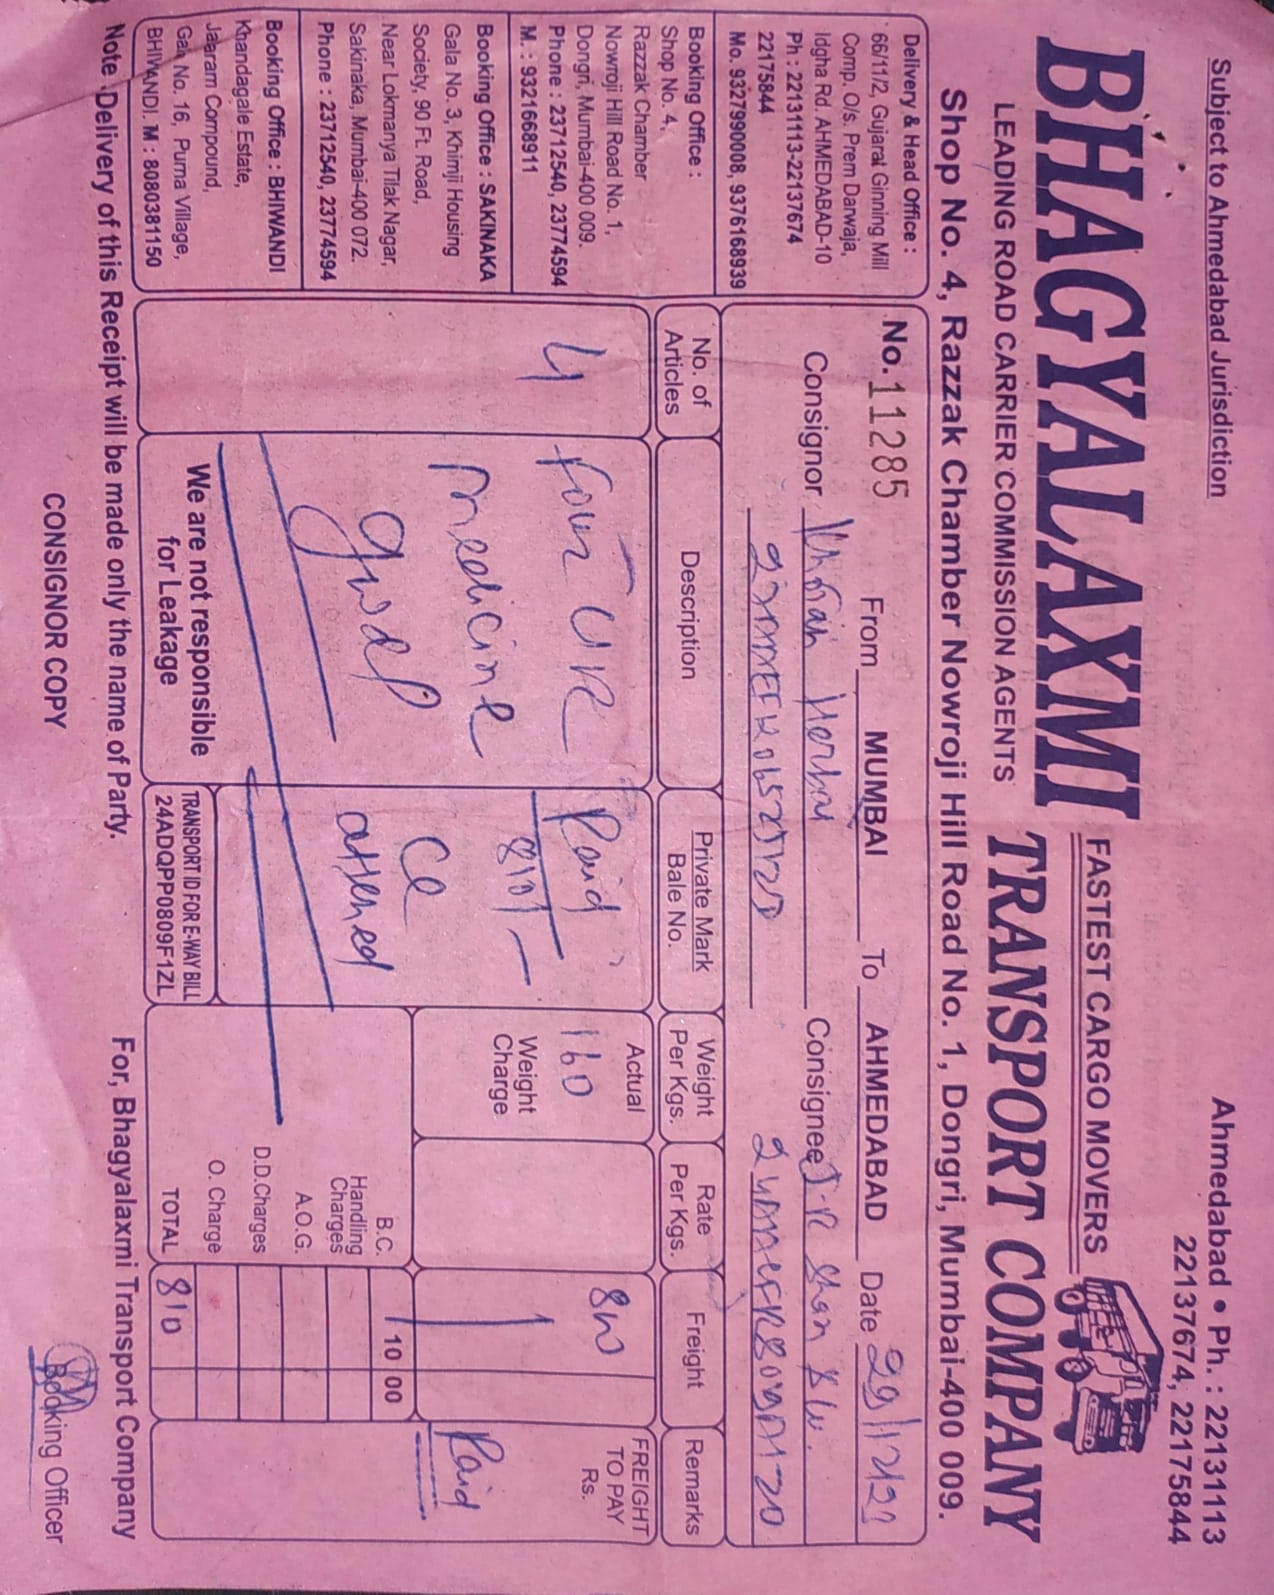 Subject to Ahmedabad Jurisdiction
Ahmedabad • Ph. : 22131113
22137674, 22175844
BHAGYALAXMI
FASTEST CARGO MOVERS
LEADING ROAD CARRIER COMMISSION AGENTS
TRANSPORT COMPANY
Shop No. 4, Razzak Chamber Nowroji Hill Road No. 1, Dongri, Mumbai-400 009.
Delivery & Head Office :
66/11/2, Gujarat Ginning Mill
Comp. O/s. Prem Darwaja,
Idgha Rd. AHMEDABAD-10
Ph : 22131113-22137674
22175844
Mo. 9327990008, 9376168939
Booking Office :
Shop No. 4,
Razzak Chamber
Nowroji Hill Road No. 1,
Dongri, Mumbai-400 009.
Phone : 23712540, 23774594
M. : 9321668911
Booking Office : SAKINAKA
Gala No. 3, Khimji Housing
Society, 90 Ft. Road,
Near Lokmanya Tilak Nagar,
Sakinaka, Mumbai-400 072.
Phone : 23712540, 23774594
Booking Office : BHIWANDI
Khandagale Estate,
Jalaram Compound,
Gala No. 16, Purna Village,
BHIWANDI. M : 8080381150
No. 11285 From MUMBAI To AHMEDABAD Date
Consignor Consignee
No. of
Articles
Description
Private Mark
Bale No.
Weight
Per Kgs.
Rate
Per Kgs.
Freight
Remarks
4
Four
medicine
Paid
810/-
attached
Actual
160
Weight
Charge
FREIGHT
TO PAY
Rs.
Paid
B.C. 10 00
Handling
Charges
A.O.G.
D.D.Charges
O. Charge
TOTAL 810
We are not responsible
for Leakage
TRANSPORT ID FOR E-WAY BILL
24ADQPP0809F1ZL
Note : Delivery of this Receipt will be made only the name of Party.
For, Bhagyalaxmi Transport Company
CONSIGNOR COPY
Booking Officer